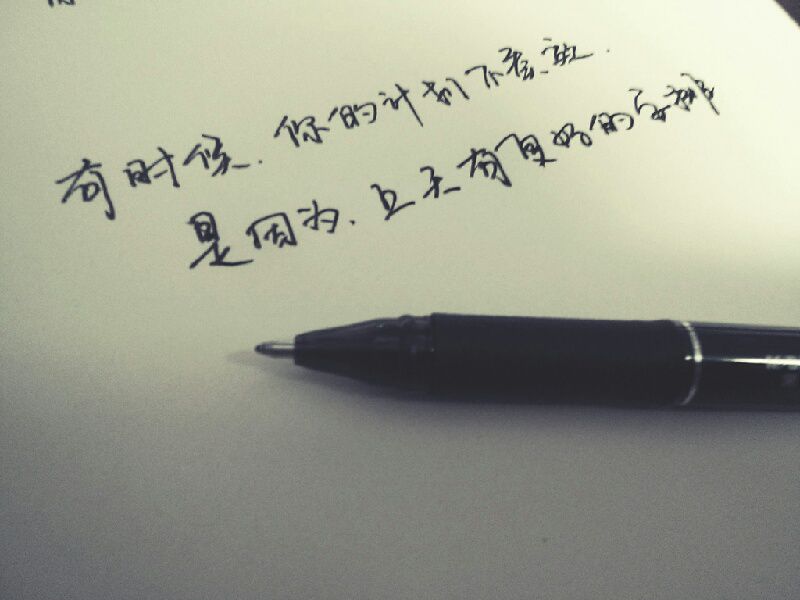 有时候.你的计划不奏效.
是因为.上天有更好的安排